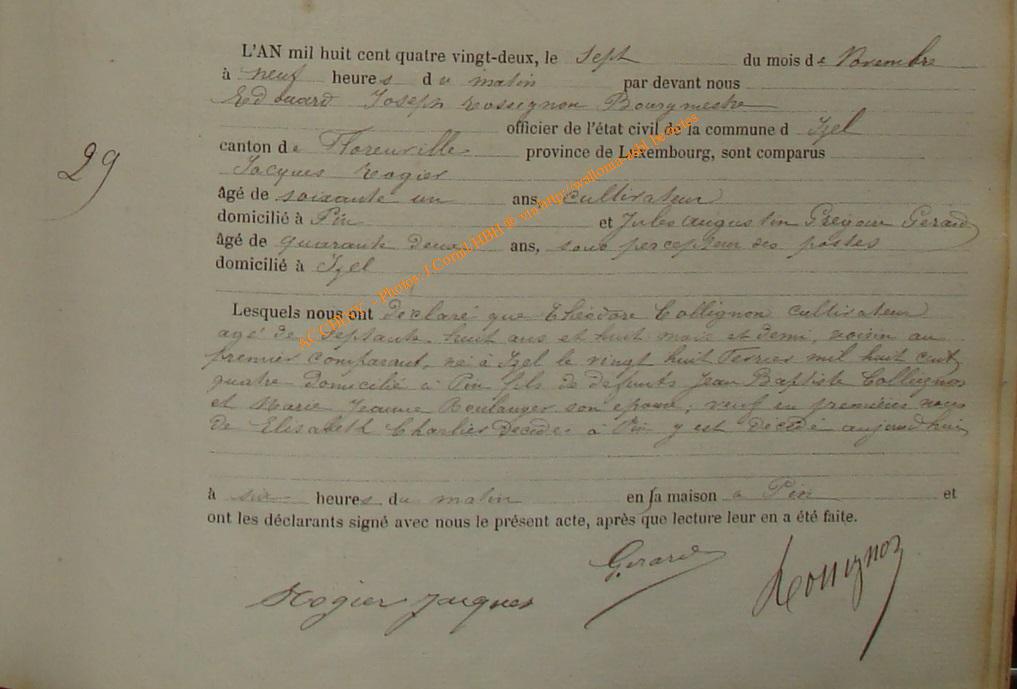 L'AN mil huit cent quatre vingt-deux, le sept du mois de Novembre
à neuf heures du matin par devant nous
Edouard Joseph Rossignon Bourgmestre
officier de l'état civil de la commune d Izel
canton de Florenville province de Luxembourg, sont comparus
Jacques Rogier
29
âgé de soixante un ans, cultivateur
domicilié à Pin et Jules Augustin Grégoire Gerard
âgé de quarante deux ans, sous percepteur des postes
domicilié à Izel
Lesquels nous ont déclaré que Théodore Collignon cultivateur
agé de septante huit ans et huit mois et demi, voisin au
premier comparant, né à Izel le vingt huit Fevrier mil huit cent
quatre domicilié à Pin fils de defunts Jean Baptiste Collignon
et Marie Jeanne Boulanger son epouse, veuf en premières noces
de Elisabeth Charlier décédée à Pin y est décédé aujourd'hui
à six heures du matin en sa maison à Pin et
ont les déclarants signé avec nous le présent acte, après que lecture leur en a été faite.
Gerard Rossignon
Rogier Jacques